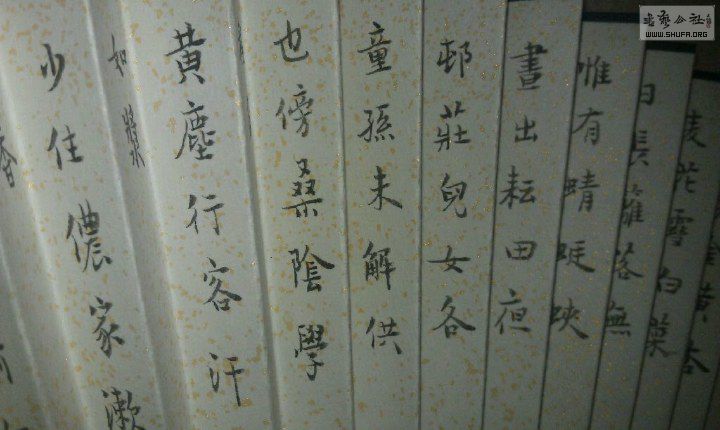 黄杏
麦花雪白菜
日長籬落無
惟有蜻蜓蛺
晝出耘田夜
邨莊兒女各
童孫未解供
也傍桑陰學
黄塵行客汗
如漿
少住儂家漱
香
WWW.SHUFA.ORG